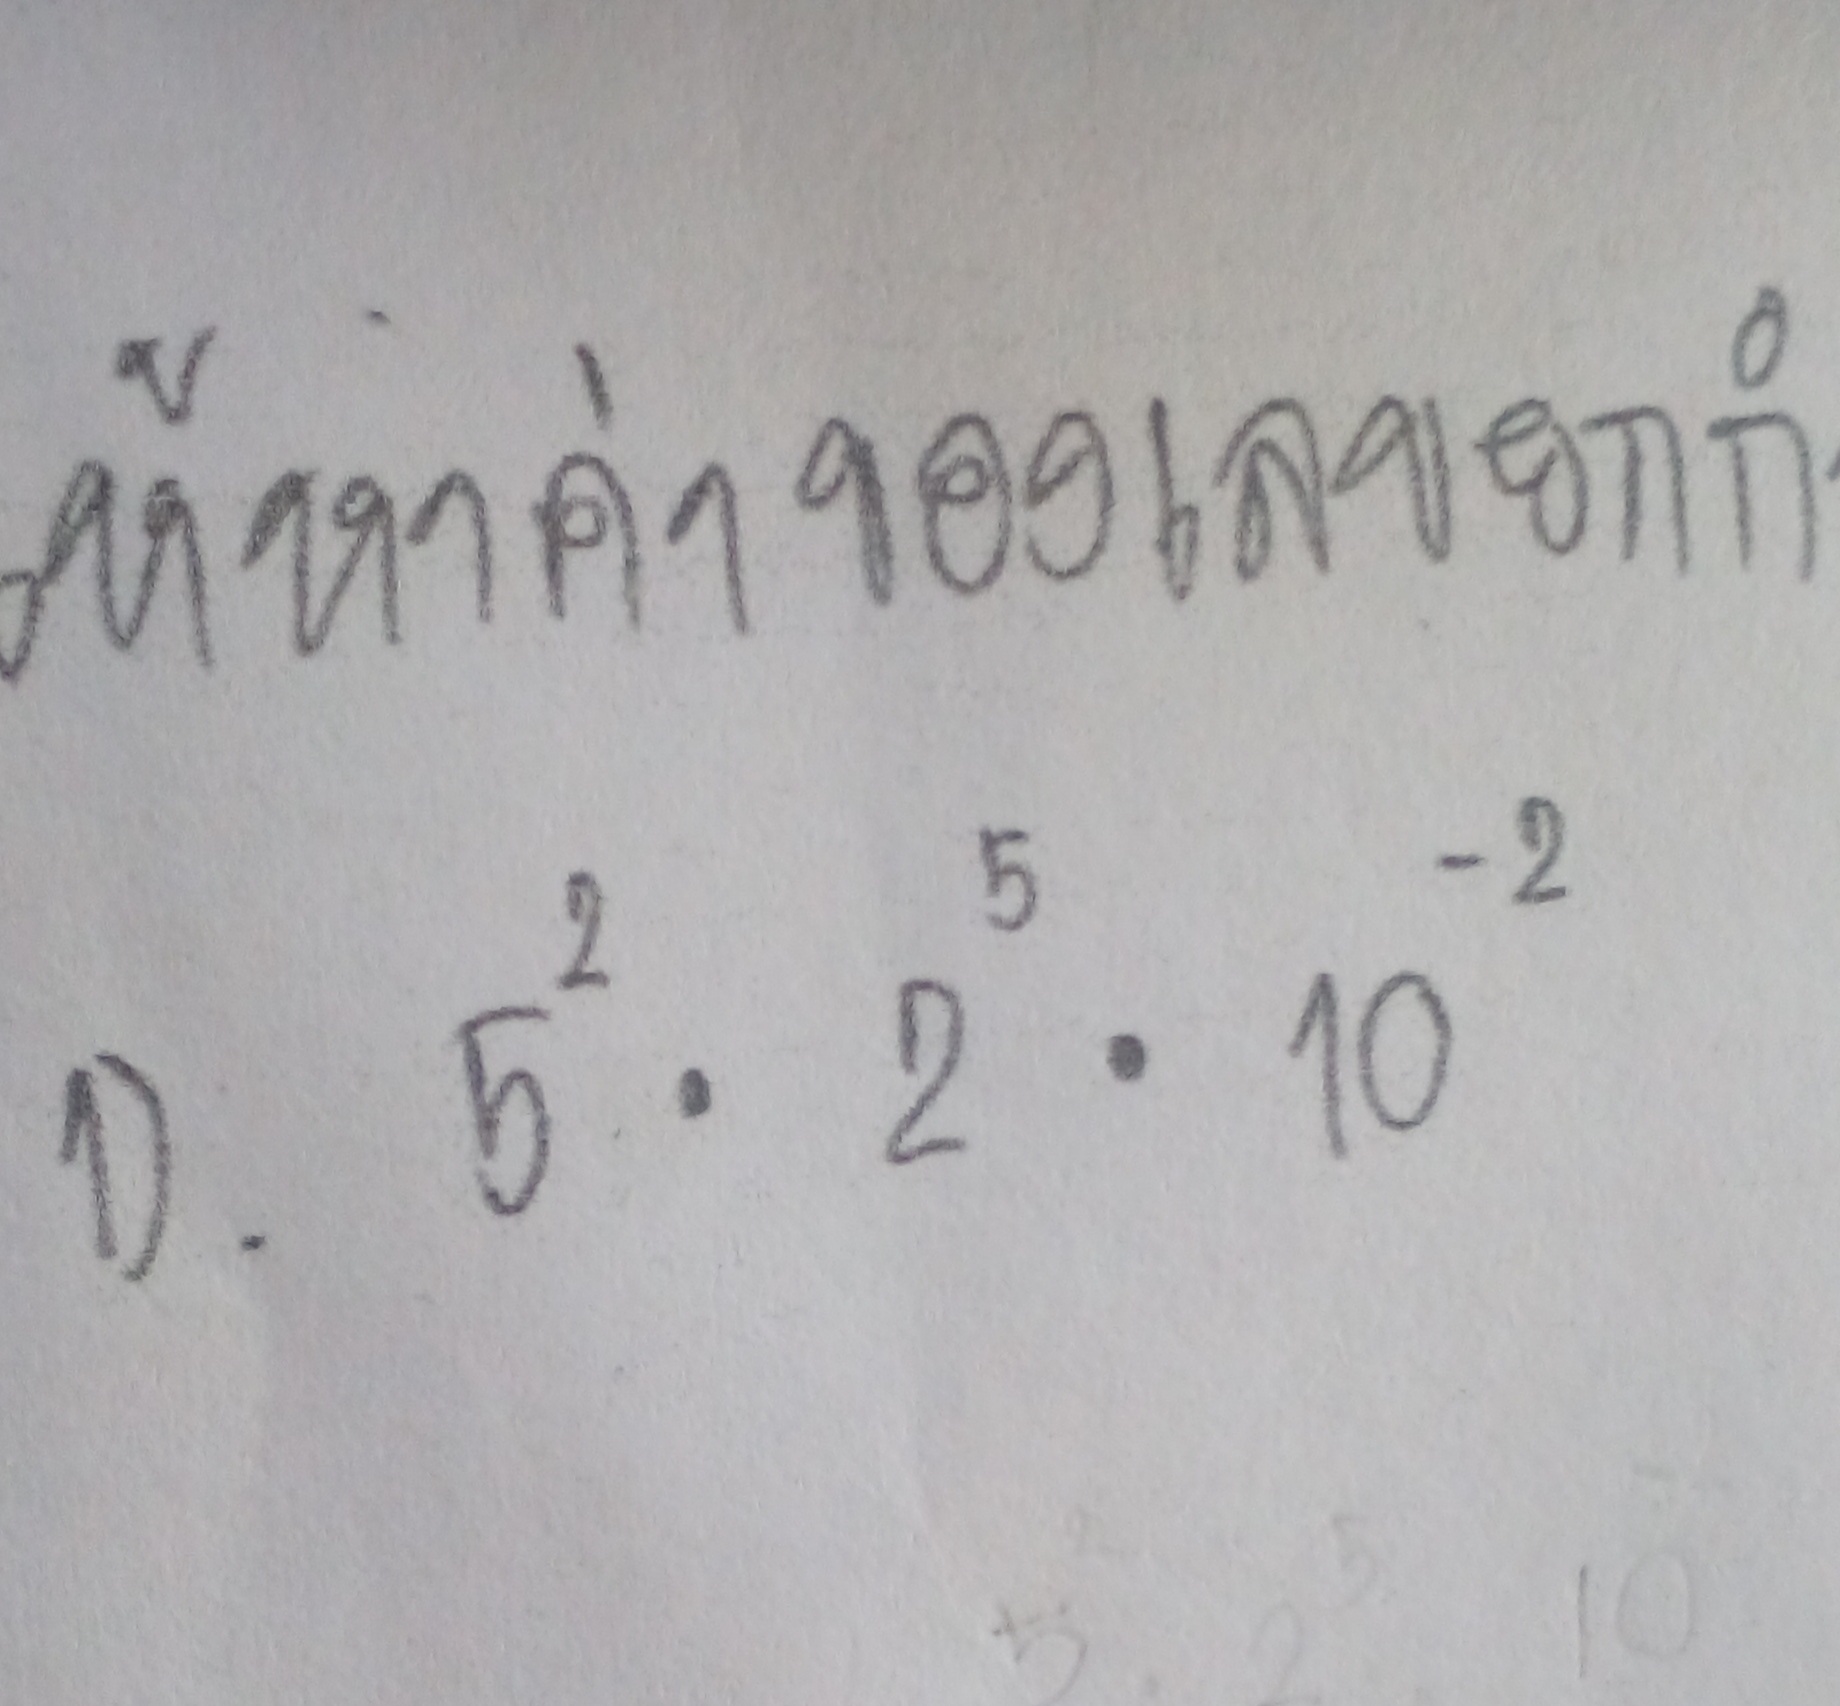 ให้หาค่าของเลขยกกำ
D. 5² • 2⁵ • 10⁻²
5² . 2⁵ 10⁻